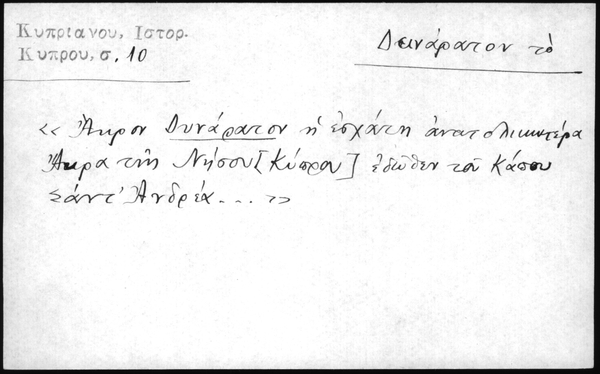 Κυπριανου, Ιστορ.
Κυπρου, σ. 10
Δεινάρατον τὸ
«Ἄκρον Δυνάρατον ἡ ἐσχάτη ἀνατολικωτέρα
Ἄκρα τῆς Νήσου [Κύπρου] ἐδῶθεν τοῦ Κάπου
Σάντ' Ἀνδρέα... »